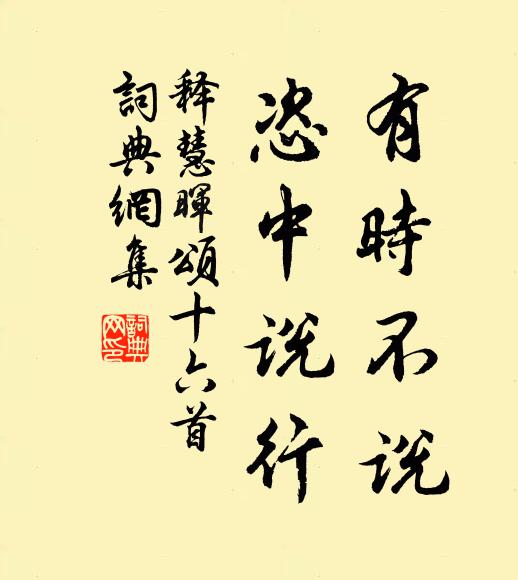 有時不説
恣中説行
釋慧暉頌十六首
詞典網集
詞典
网印